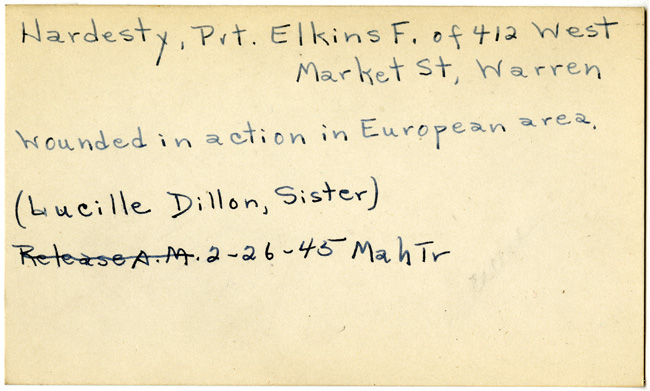 Hardesty, Pvt. Elkins F. of 412 West
Market St, Warren
Wounded in action in European area.
(Lucille Dillon, Sister)
Release A.M. 2-26-45 Mah Tr